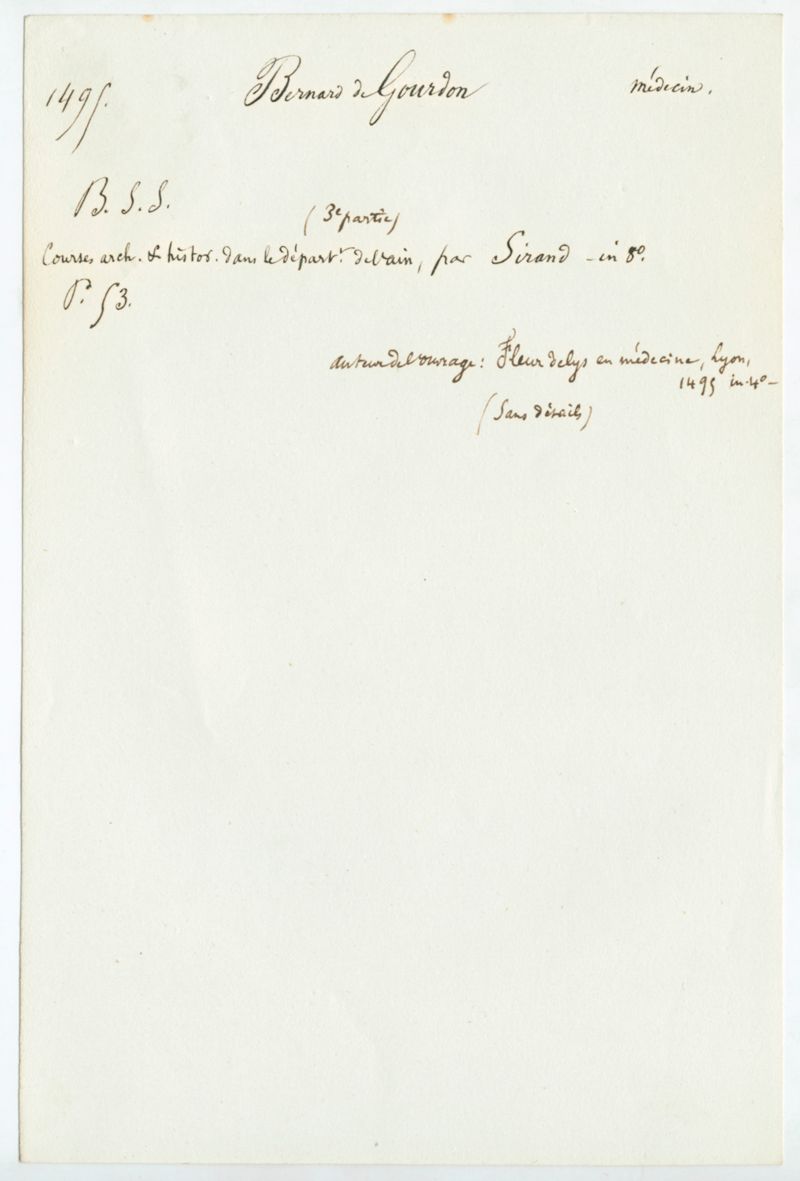 1495. Bernard de Gourdon médecin.
B. S. S.
(3e partie)
Courses arch. & histor. dans le départt. de l'ain, par Sirand - in 8o.
P. 53.
auteur de l'ouvrage: Fleur de lys en médecine, Lyon,
1495 in-4o -
(Sans détails)